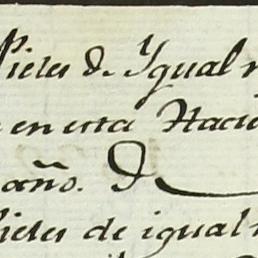 Pieles de Ygual
en esta Haci
año. D
Pieles de igual